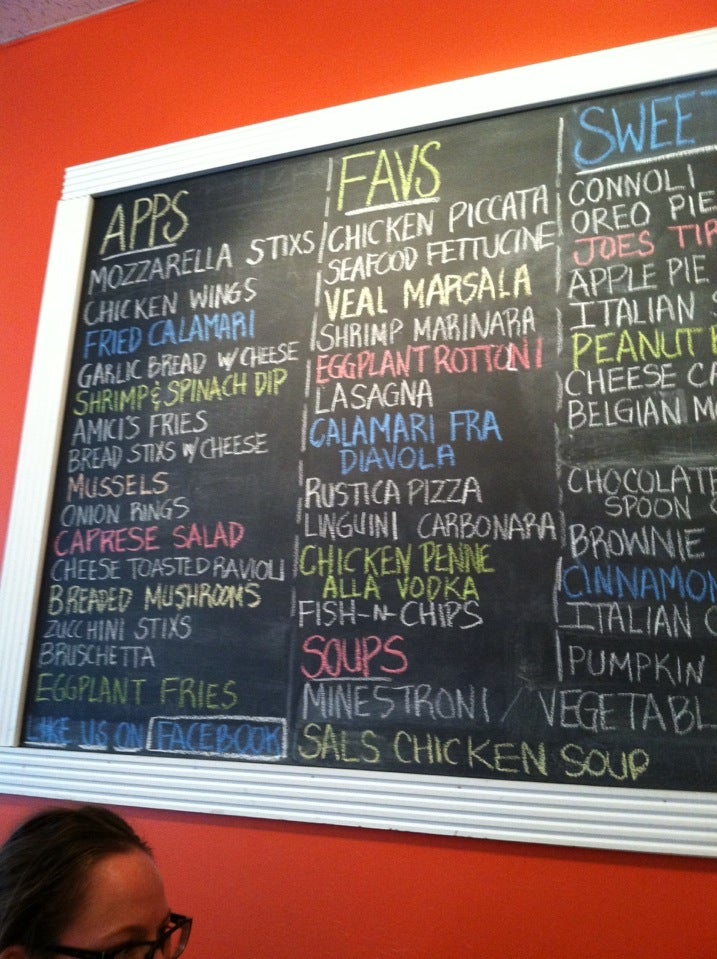 APPS
MOZZARELLA STIXS
CHICKEN WINGS
FRIED CALAMARI
GARLIC BREAD W/CHEESE
SHRIMP & SPINACH DIP
AMICI'S FRIES
BREAD STIXS W/CHEESE
MUSSELS
ONION RINGS
CAPRESE SALAD
CHEESE TOASTED RAVIOLI
BREADED MUSHROOMS
ZUCCHINI STIXS
BRUSCHETTA
EGGPLANT FRIES
LIKE US ON FACEBOOK
FAVS
CHICKEN PICCATA
SEAFOOD FETTUCINE
VEAL MARSALA
SHRIMP MARINARA
EGGPLANT ROTTONI
LASAGNA
CALAMARI FRA
DIAVOLA
RUSTICA PIZZA
LINGUINI CARBONARA
CHICKEN PENNE
ALLA VODKA
FISH-N-CHIPS
SOUPS
MINESTRONI / VEGETABL
SALS CHICKEN SOUP
SWEET
CONNOLI
OREO PIE
JOES TIR
APPLE PIE
ITALIAN
PEANUT
CHEESE CA
BELGIAN
CHOCOLATE
SPOON
BROWNIE
CINNAMON
ITALIAN
PUMPKIN